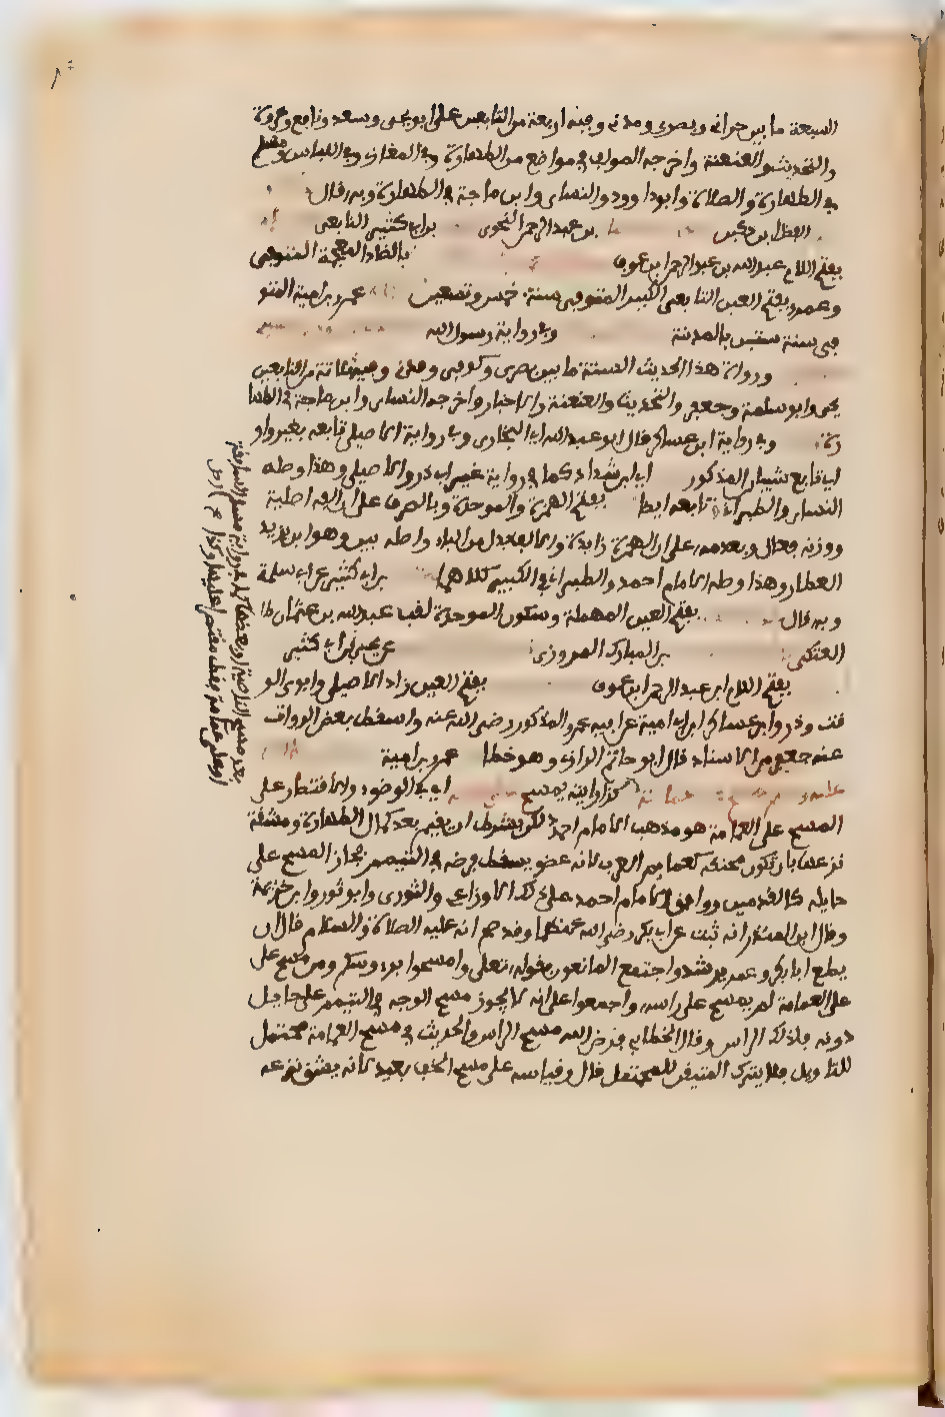 السبعة ما بين حراني ومصري ومدني وفيه اربعة من التابعين على الولا يحيى وسعد ونافع وعروة
والتحديث والعنعنة واخرجه المولف في مواضع من الطهارة وفي المغازي وفي اللباس ومسلم
في الطهارة والصلاة وابو داوود والنساى وابن ماجة في الطهارة وبه قال
الفضل ابن دكين بن عبد الرحمن النحوي بن ابي كثير التابعي
بفتح اللام عبد الله بن عبد الرحمن ابن عوف بالضاد المعجمة المتوفى
وعمرو بفتح العين التابعي الكبير المتوفى سنة خمس وتسعين عمرو بن امية المتو
في سنة ستين بالمدينة وفي رواية رسول الله
ورواة هذا الحديث الستة ما بين بصري وكوفي ومدني وفيه ثلاثة من التابعين
يحيى وابو سلمة وجعفر والتحديث والعنعنة والاخبار واخرجه النساى وابن ماجة في الطها
رة وفي رواية ابن عساكر قال ابو عبد الله اي البخاري وفي رواية الاصيلي تابعه بغير واو
اي تابع شيبان المذكور اي ابن شداد كما في رواية غير ابي ذر والاصيلي وهذا وصله
النساى والطبراني تابعه ايضا بفتح الهمزة والموحدة وبالصرف على ان الفه اصلية
ووزنه فعال وبعدمه على ان الهمزة زايدة والالف بدل من الياء واصله بين وهو ابن يزيد
العطار وهذا وصله الامام احمد والطبراني في الكبير كلاهما بن ابي كثير عن ابي سلمة
وبه قال بفتح العين المهملة وسكون الموحدة لقب عبد الله بن عثمان
العتكي بن المبارك المروزي عن يحيى بن ابي كثير
بفتح اللام ابن عبد الرحمن ابن عوف بفتح العين زاد الاصيلي وابوي الو
قت وذر وابن عساكر ابن امية عن ابيه عمرو المذكور رضي الله عنه واسقط بعض الرواة
عنه جعفر من الاسناد قال ابو حاتم الرازي وهو خطا عمرو بن امية
كذا رايته يمسح اي في الوضوء والاقتصار على
المسح على العمامة هو مذهب الامام احمد لكن بشرط ان يعتم بعد كمال الطهارة ومشقة
نزعها بان تكون محنكة كعمايم العرب لانه عضو يسقط فرضه في التيمم فجاز المسح على
حايله كالقدمين ووافق الامام احمد على ذلك الاوزاعي والثوري وابو ثور وابن خزيمة
وقال ابن المنذر انه ثبت عن ابي بكر رضي الله عنهما وقد صح انه عليه الصلاة والسلام قال ان
يطع ابا بكر وعمر يرشدوا احتج المانعون بقوله تعالى وامسحوا بروسكم ومن مسح على
على العمامة لم يمسح على راسه واجمعوا على انه لا يجوز مسح الوجه في التيمم على حايل
دونه فكذلك الراس وقال الخطابي فرض الله مسح الراس والحديث في مسح العمامة محتمل
للتاويل فلا يترك المتيقن للمحتمل قال وقياسه على مسح الخف بعيد لانه يشق نزعه
بعد مسح الناصية او بعضها كما في رواية مسلم السابقة